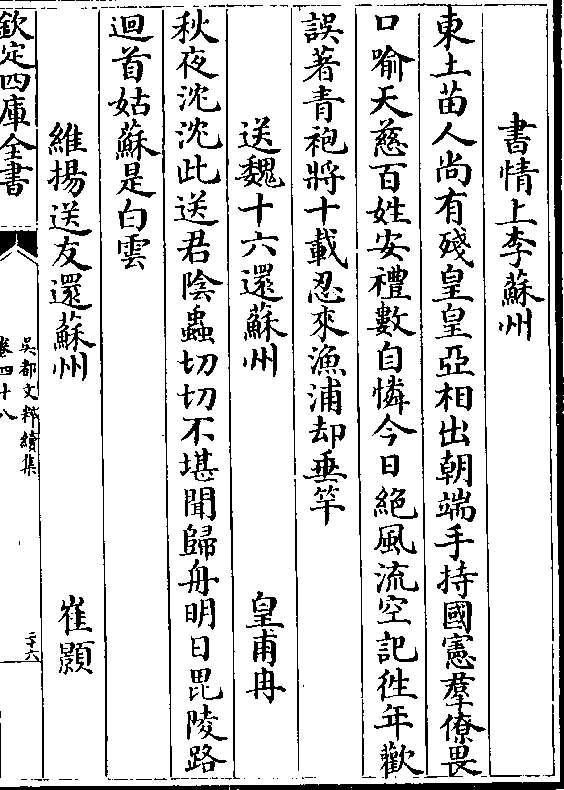 書情上李蘇州
東土苗人尚有殘皇皇亞相出朝端手持國憲羣僚畏
口喻天慈百姓安禮數自憐今日絕風流空記徃年歡
誤著青袍將十載忍來漁浦却垂竿
送魏十六還蘇州　皇甫冉
秋夜沈沈此送君陰蟲切切不堪聞歸舟明日毘陵路
迴首姑蘇是白雲
維揚送友還蘇州　崔顥
欽定四庫全書
吳都文粹續集
卷四十八
二十六